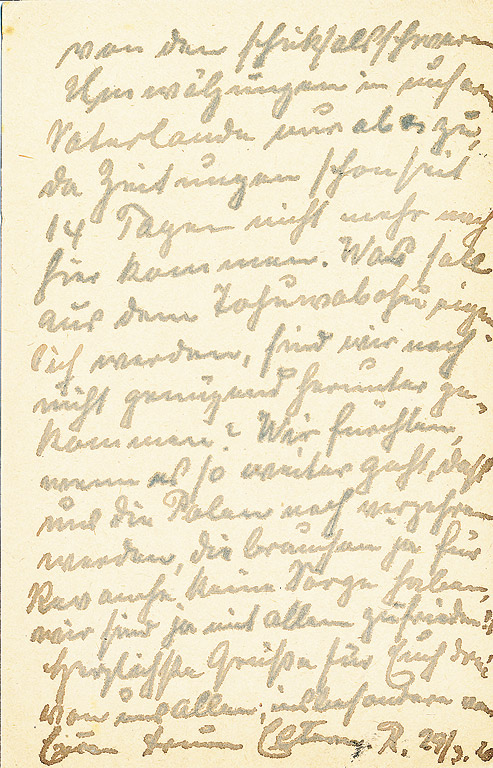 von den schicksalsschweren
Umwälzungen in unserem
Vaterlande nur ab u zu,
da Zeitungen schon seit
14 Tagen nicht mehr nach
hier kommen. Was soll
aus dem Tohuwabohu eigent
lich werden, sind wir noch
nicht genügend herunter ge-
kommen? Wir fürchten,
wenn es so weiter geht, daß
uns die Polen noch verzehren
werden, die brauchen ja für
Revanche keine Sorge haben,
wir sind ja mit allem zufrieden!
Herzlichste Grüße für Euch drei
von uns allen, insbesondere von
Euren treuen Eltern. R. 29/3. 20